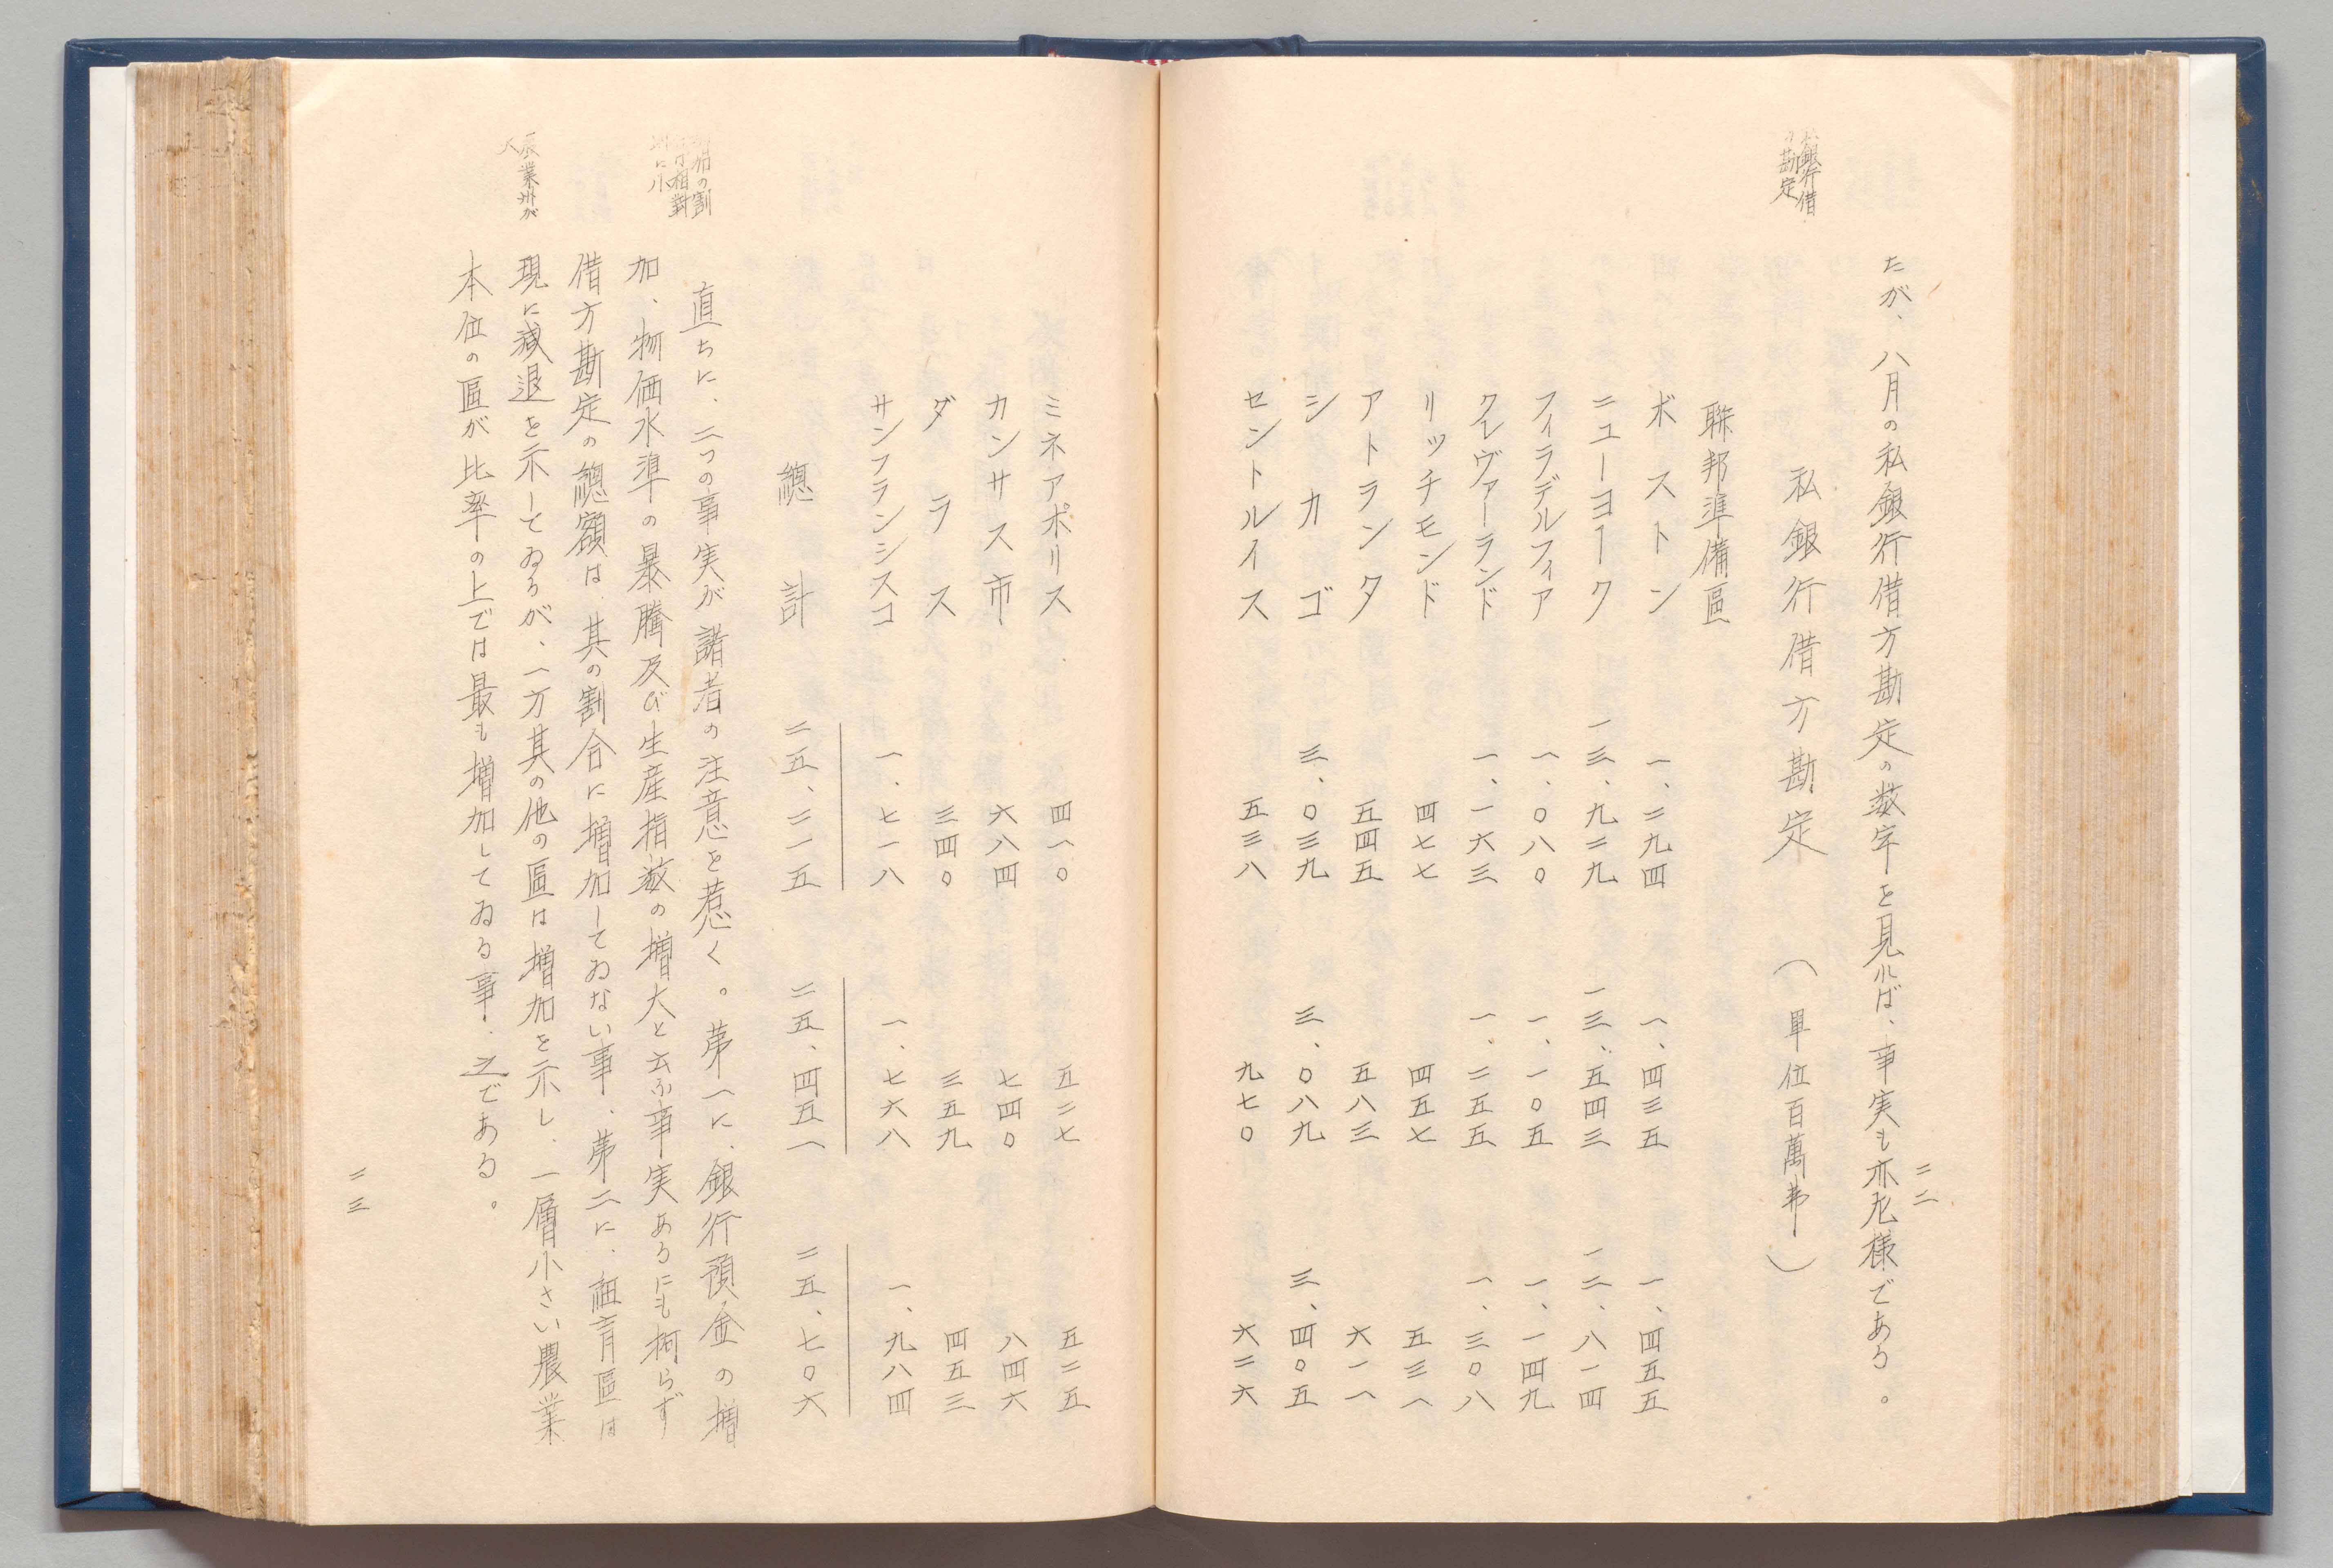 二二
銀行借
勘定
たが、八月の私銀行借方勘定の数字を見れば、事実も亦九様である。
私銀行借方勘定 (単位百萬弗)
聯邦準備區
ボストン 一、二九四 一、四三五 一、四五五
ニューヨーク 一三、九二九 一三、五四三 一二、八一四
フィラデルフィア 一、〇八〇 一、一〇五 一、一四九
クレヴァーランド 一、一六三 一、二五五 一、三〇八
リッチモンド 四七七 四五七 五三一
アトランタ 五四五 五八三 六一一
シカゴ 三、〇三九 三、〇八九 三、四〇五
セントルイス 五三八 九七〇 六二六
ミネアポリス 四一〇 五二七 五二五
カンサス市 六八四 七四〇 八四六
ダラス 三四〇 三五九 四五三
サンフランシスコ 一、七一八 一、七六八 一、九八四
總計 二五、二一五 二五、四五一 二五、七〇六
加の割
相對
に小
直ちに、二つの事実が諸者の注意を惹く。第一に、銀行預金の増
加、物価水準の暴騰及び生産指数の増大と云ふ事実あるにも拘らず
借方勘定の總額は、其の割合に増加してゐない事、第二に、紐育區は
農業州が
大
現に減退を示してゐるが、一方其の他の區は増加を示し、一層小さい農業
本位の區が比率の上では最も増加してゐる事、之である。
二三